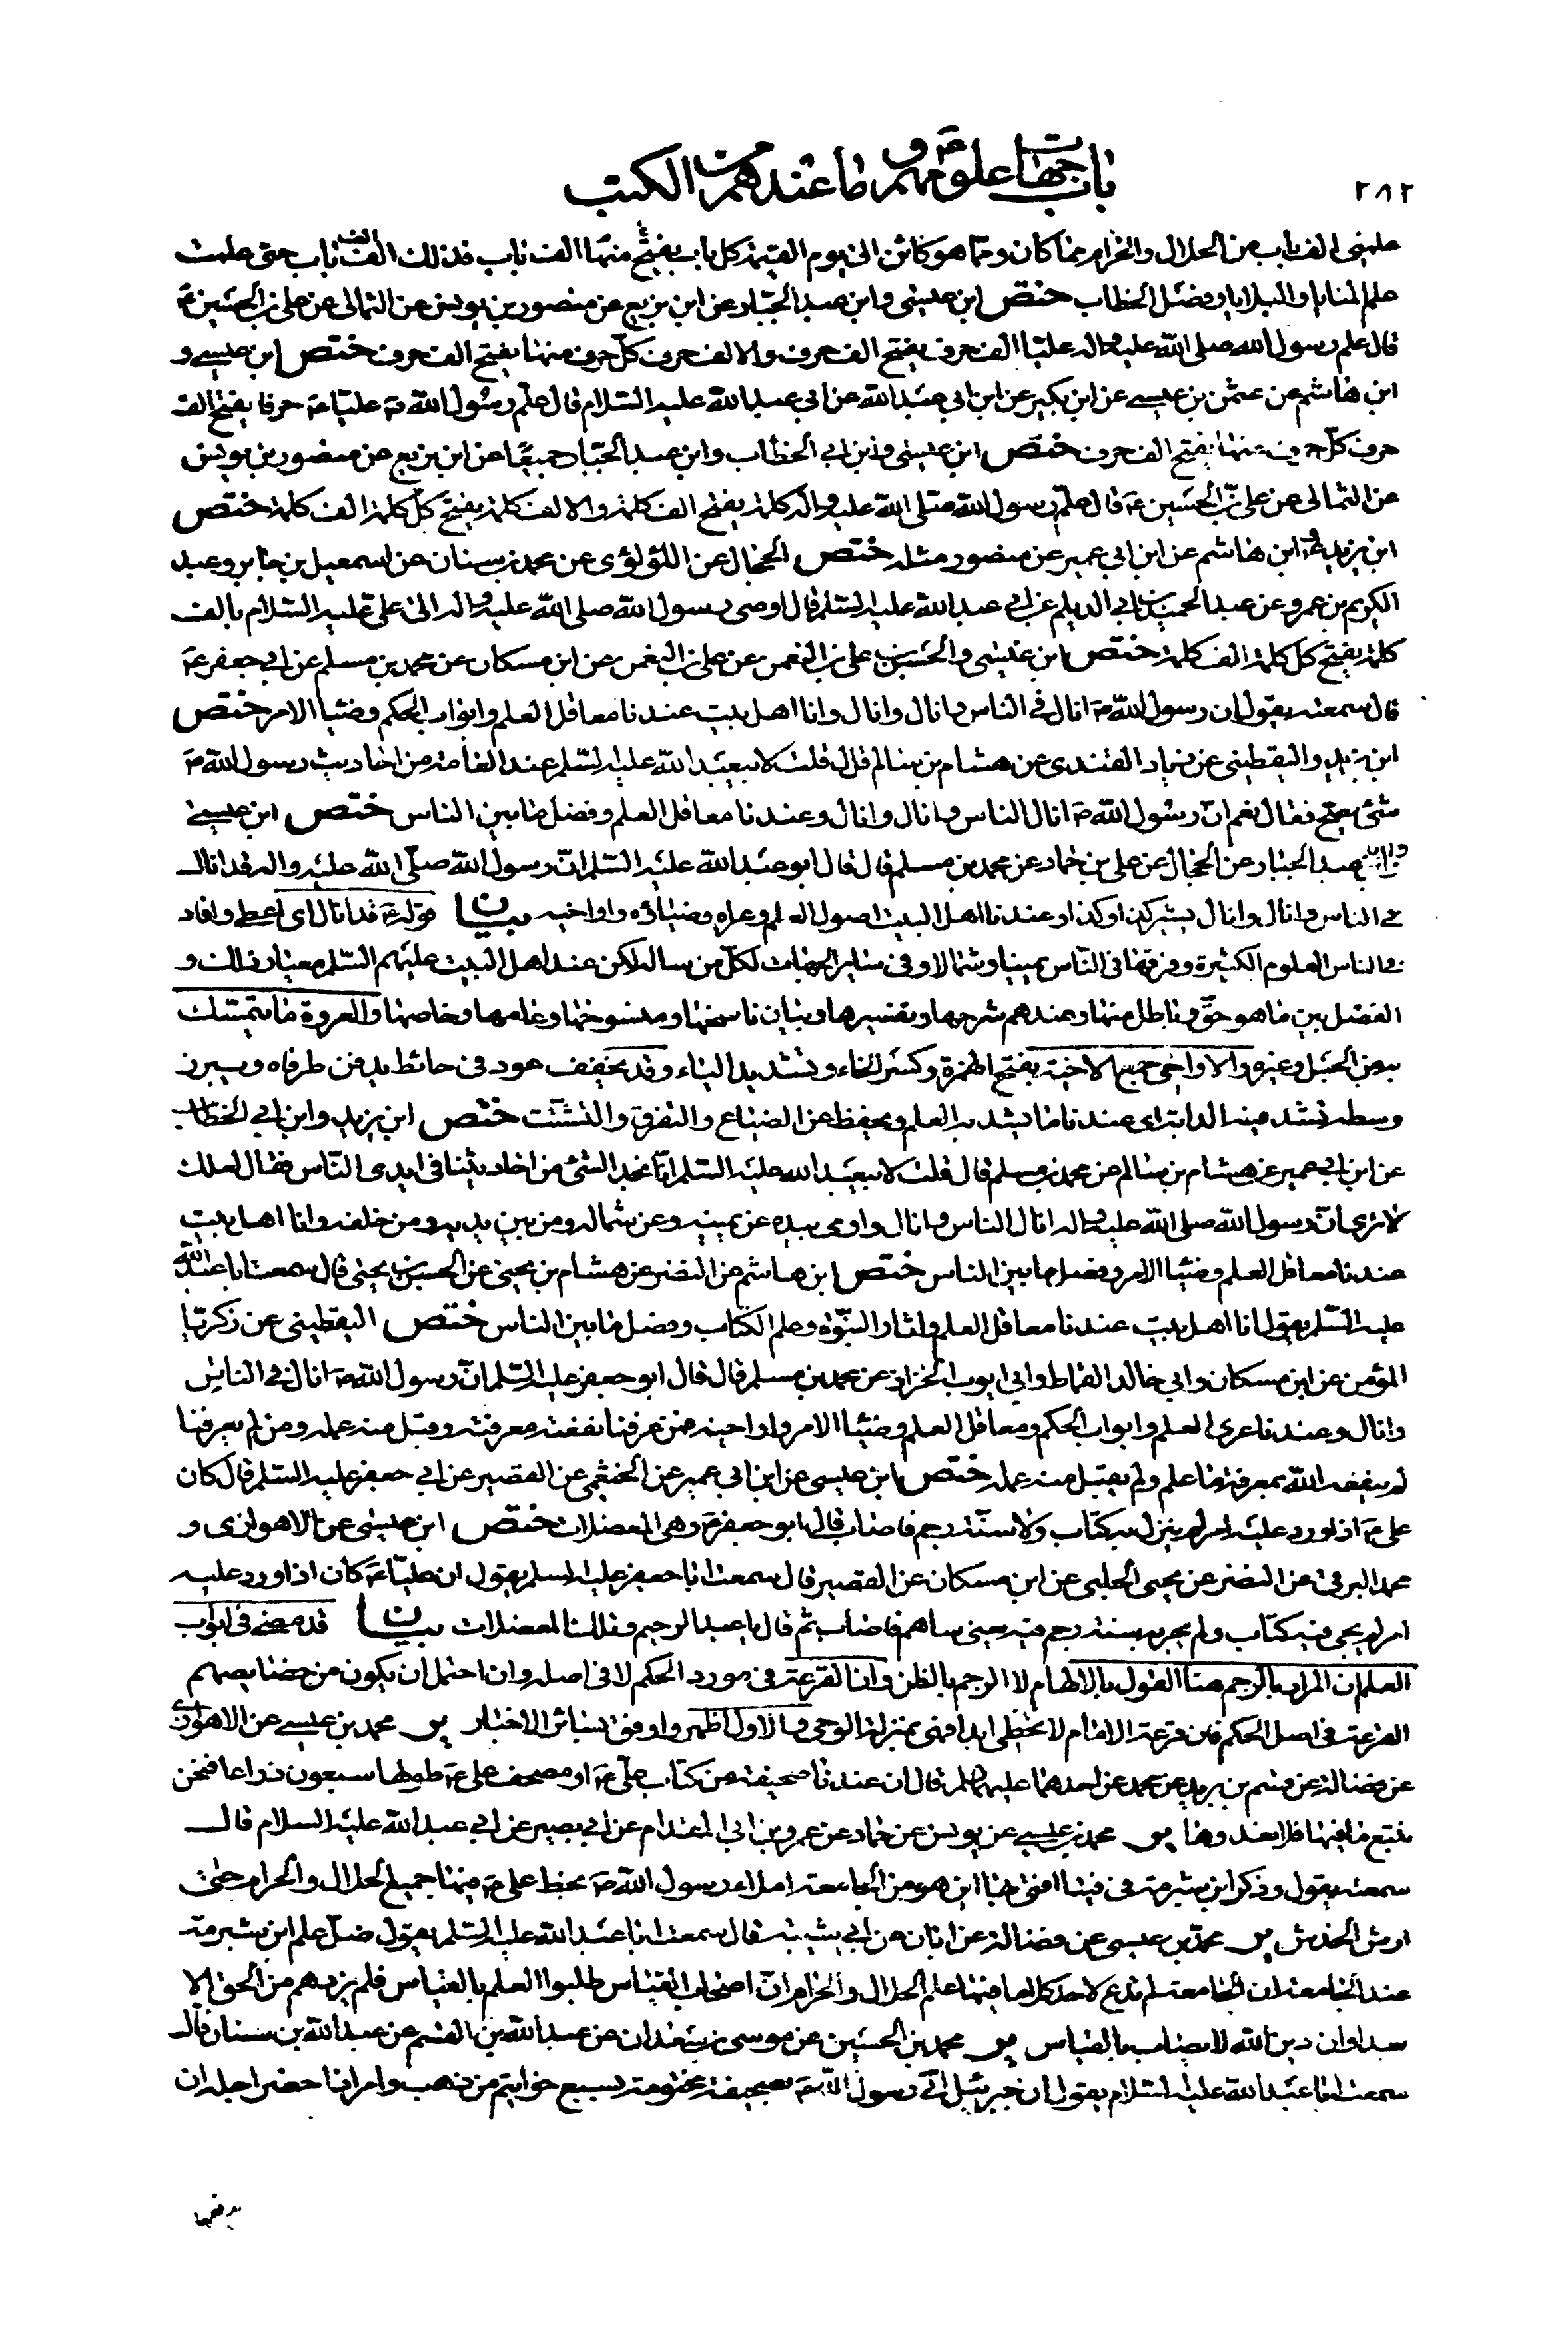 ٢٨٢
باب جهات علومهم ع وما عندهم من الكتب
علمني الف باب من الحلال والحرام مما كان ومما هو كائن الى يوم القيمة كل باب يفتح منها الف باب فذلك الف الف باب حتى علمت
علم المنايا والبلايا وفصل الخطاب ختص ابن عيسى وابن عبد الجبار عن ابن بزيع عن منصور بن يونس عن الثمالى عن على بن الحسين ع
قال علم رسول الله صلى الله عليه واله عليا الف حرف يفتح الف حرف والالف حرف كل حرف منها يفتح الف حرف ختص ابن عيسى و
ابن هاشم عن عثمن بن عيسى عن ابن بكير عن ابن ابي عبد الله عن ابي عبد الله عليه السلام قال علم رسول الله ص عليا ع حرفا يفتح الف
حرف كل حرف منها يفتح الف حرف ختص ابن عيسى وابن ابي الخطاب وابن عبد الجبار جميعا عن ابن بزيع عن منصور بن يونس
عن الثمالى عن على بن الحسين ع قال علم رسول الله صلى الله عليه واله كلمة يفتح الف كلمة والالف كلمة يفتح كل كلمة الف كلمة ختص
ابن يزيد وابن هاشم عن ابن ابي عمير عن منصور مثله ختص الحجال عن اللؤلؤى عن محمد بن سنان عن اسمعيل بن جابر وعبد
الكريم بن عمرو عن عبد الحميد بن ابي الديلم عن ابي عبد الله عليه السلم قال اوصى رسول الله صلى الله عليه واله الى على عليه السلام بالف
كلمة يفتح كل كلمة الف كلمة ختص ابن عيسى والحسن بن على بن النعمن عن على بن النعمن عن ابن مسكان عن محمد بن مسلم عن ابي جعفر ع
قال سمعته يقول ان رسول الله ص انال في الناس وانال وانال وانا اهل بيت عندنا معاقل العلم وابواب الحكم وضياء الامر ختص
ابن يزيد واليقطينى عن زياد القندى عن هشام بن سالم قال قلت لابيعبد الله عليه السلم عند العامة من احاديث رسول الله ص
شئ يصح فقال نعم ان رسول الله ص انال الناس وانال وانال وعندنا معاقل العلم وفصل ما بين الناس ختص ابن عيسى
وابن عبد الجبار عن الحجال عن على بن حماد عن محمد بن مسلم قال قال ابو عبد الله عليه السلم ان رسول الله صلى الله عليه واله قد انال
في الناس وانال وانال يشير كذا وكذا وعندنا اهل البيت اصول العلم وعراه وضياؤه واواخيه بيان قوله ع قد انال اى اعطى وافاد
في الناس العلوم الكثيرة وفرقها في الناس يمينا وشمالا وفى ساير الجهات لكل من سال لكن عند اهل البيت عليهم السلم معيار ذلك و
الفصل بين ما هو حق وباطل منها وعندهم شرحها وتفسيرها وبيان ناسخها ومنسوخها وعامها وخاصها والعروة ما يتمسك
به من الحبل وغيره والاواخى جمع الاخية بفتح الهمزة وكسر الخاء وتشديد الياء وقد يخفف عود في حائط يدفن طرفاه ويبرز
وسطه تشد فيه الدابة اى عندنا ما يشد به العلم ويحفظ عن الضياع والتفرق والتشتت ختص ابن يزيد وابن ابي الخطاب
عن ابن ابي عمير عن هشام بن سالم عن محمد بن مسلم قال قلت لابيعبد الله عليه السلم انا نجد الشئ من احاديثنا في ايدى الناس فقال لعلك
لا ترى ان رسول الله صلى الله عليه واله انال الناس وانال واومى بيده عن يمينه وعن شماله ومن بين يديه ومن خلفه وانا اهل بيت
عندنا معاقل العلم وضياء الامر وفصل ما بين الناس ختص ابن هاشم عن النضر عن هشام بن يحيى عن الحسين بن يحيى قال سمعت ابا عبد الله
عليه السلم يقول انا اهل بيت عندنا معاقل العلم واثار النبوة وعلم الكتاب وفصل ما بين الناس ختص اليقطينى عن زكريا
المؤمن عن ابن مسكان وابي خالد القماط وابي ايوب الخزاز عن محمد بن مسلم قال قال ابو جعفر عليه السلم ان رسول الله ص انال في الناس
وانال وعندنا عرى العلم وابواب الحكم ومعاقل العلم وضياء الامر واواخيه فمن عرفنا نفعته معرفته وقبل منه عمله ومن لم يعرفنا
لم ينفعه الله بمعرفة ما علم ولم يقبل منه عمله ختص ابن عيسى عن ابن ابي عمير عن الخثعمى عن القصير عن ابي جعفر عليه السلم قال كان
على ع اذا ورد عليه امر لم ينزل به كتاب ولا سنة رجم فاصاب قال ابو جعفر ع وهى المعضلات ختص ابن عيسى عن الاهوازى و
محمد البرقى عن النضر عن يحيى الحلبى عن ابن مسكان عن القصير قال سمعت ابا جعفر عليه السلم يقول ان عليا ع كان اذا ورد عليه
امر لم يجئ فيه كتاب ولم يجر به سنة رجم فيه يعنى ساهم فاصاب ثم قال يا عبد الرحيم وتلك المعضلات بيان قد مضى في ابواب
العلم ان المراد بالرجم هنا القول بالالهام لا الرجم بالظن وانا لقرعة في مورد الحكم لا في اصله وان احتمل ان يكون من خصايصهم
القرعة في اصل الحكم فان قرعة الامام لا تخطى ابدا فهى بمنزلة الوحى والاول اظهر واوفق بسائر الاخبار ير محمد بن عيسى عن الاهوازى
عن فضالة عن قسم بن بريد عن محمد عن احدهما عليهما السلم قال ان عندنا صحيفة من كتاب على ع او مصحف على ع طولها سبعون ذراعا فنحن
نتبع ما فيها فلا نعدوها ير محمد بن عيسى عن يونس عن حماد عن عمرو بن ابي المقدام عن ابي بصير عن ابي عبد الله عليه السلام قال
سمعته يقول وذكر ابن شبرمة في فتيا افتى بها اين هو من الجامعة املاء رسول الله ص بخط على ع فيها جميع الحلال والحرام حتى
ارش الخدش ير محمد بن عيسى عن فضالة عن ابان عن ابي شيبة قال سمعت ابا عبد الله عليه السلم يقول ضل علم ابن شبرمة
عند الجامعة ان الجامعة لم تدع لاحد كلاما فيها علم الحلال والحرام ان اصحاب القياس طلبوا العلم بالقياس فلم يزدهم من الحق الا
بعدا وان دين الله لا يصاب بالقياس ير محمد بن الحسين عن موسى بن سعدان عن عبد الله بن القسم عن عبد الله بن سنان قال
سمعت ابا عبد الله عليه السلام يقول ان جبرئيل اتى رسول الله ص بصحيفة مختومة بسبع خواتيم من ذهب وامر اذا حضر اجله ان
يدفعها